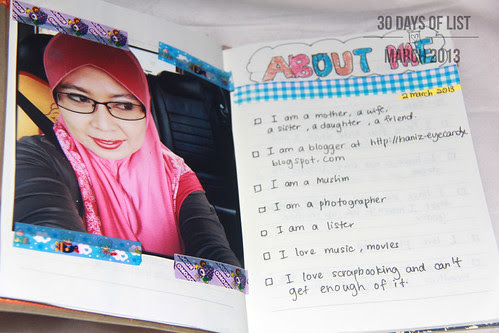 30 DAYS OF LIST
MARCH 2013
ABOUT ME
2 march 2013
I am a mother, a wife,
a sister, a daughter, a friend.
I am a blogger at http://haniz-eyecandy.
blogspot.com
I am a Muslim
I am a photographer
I am a lister
I love music, movies
I love scrapbooking and can't
get enough of it.